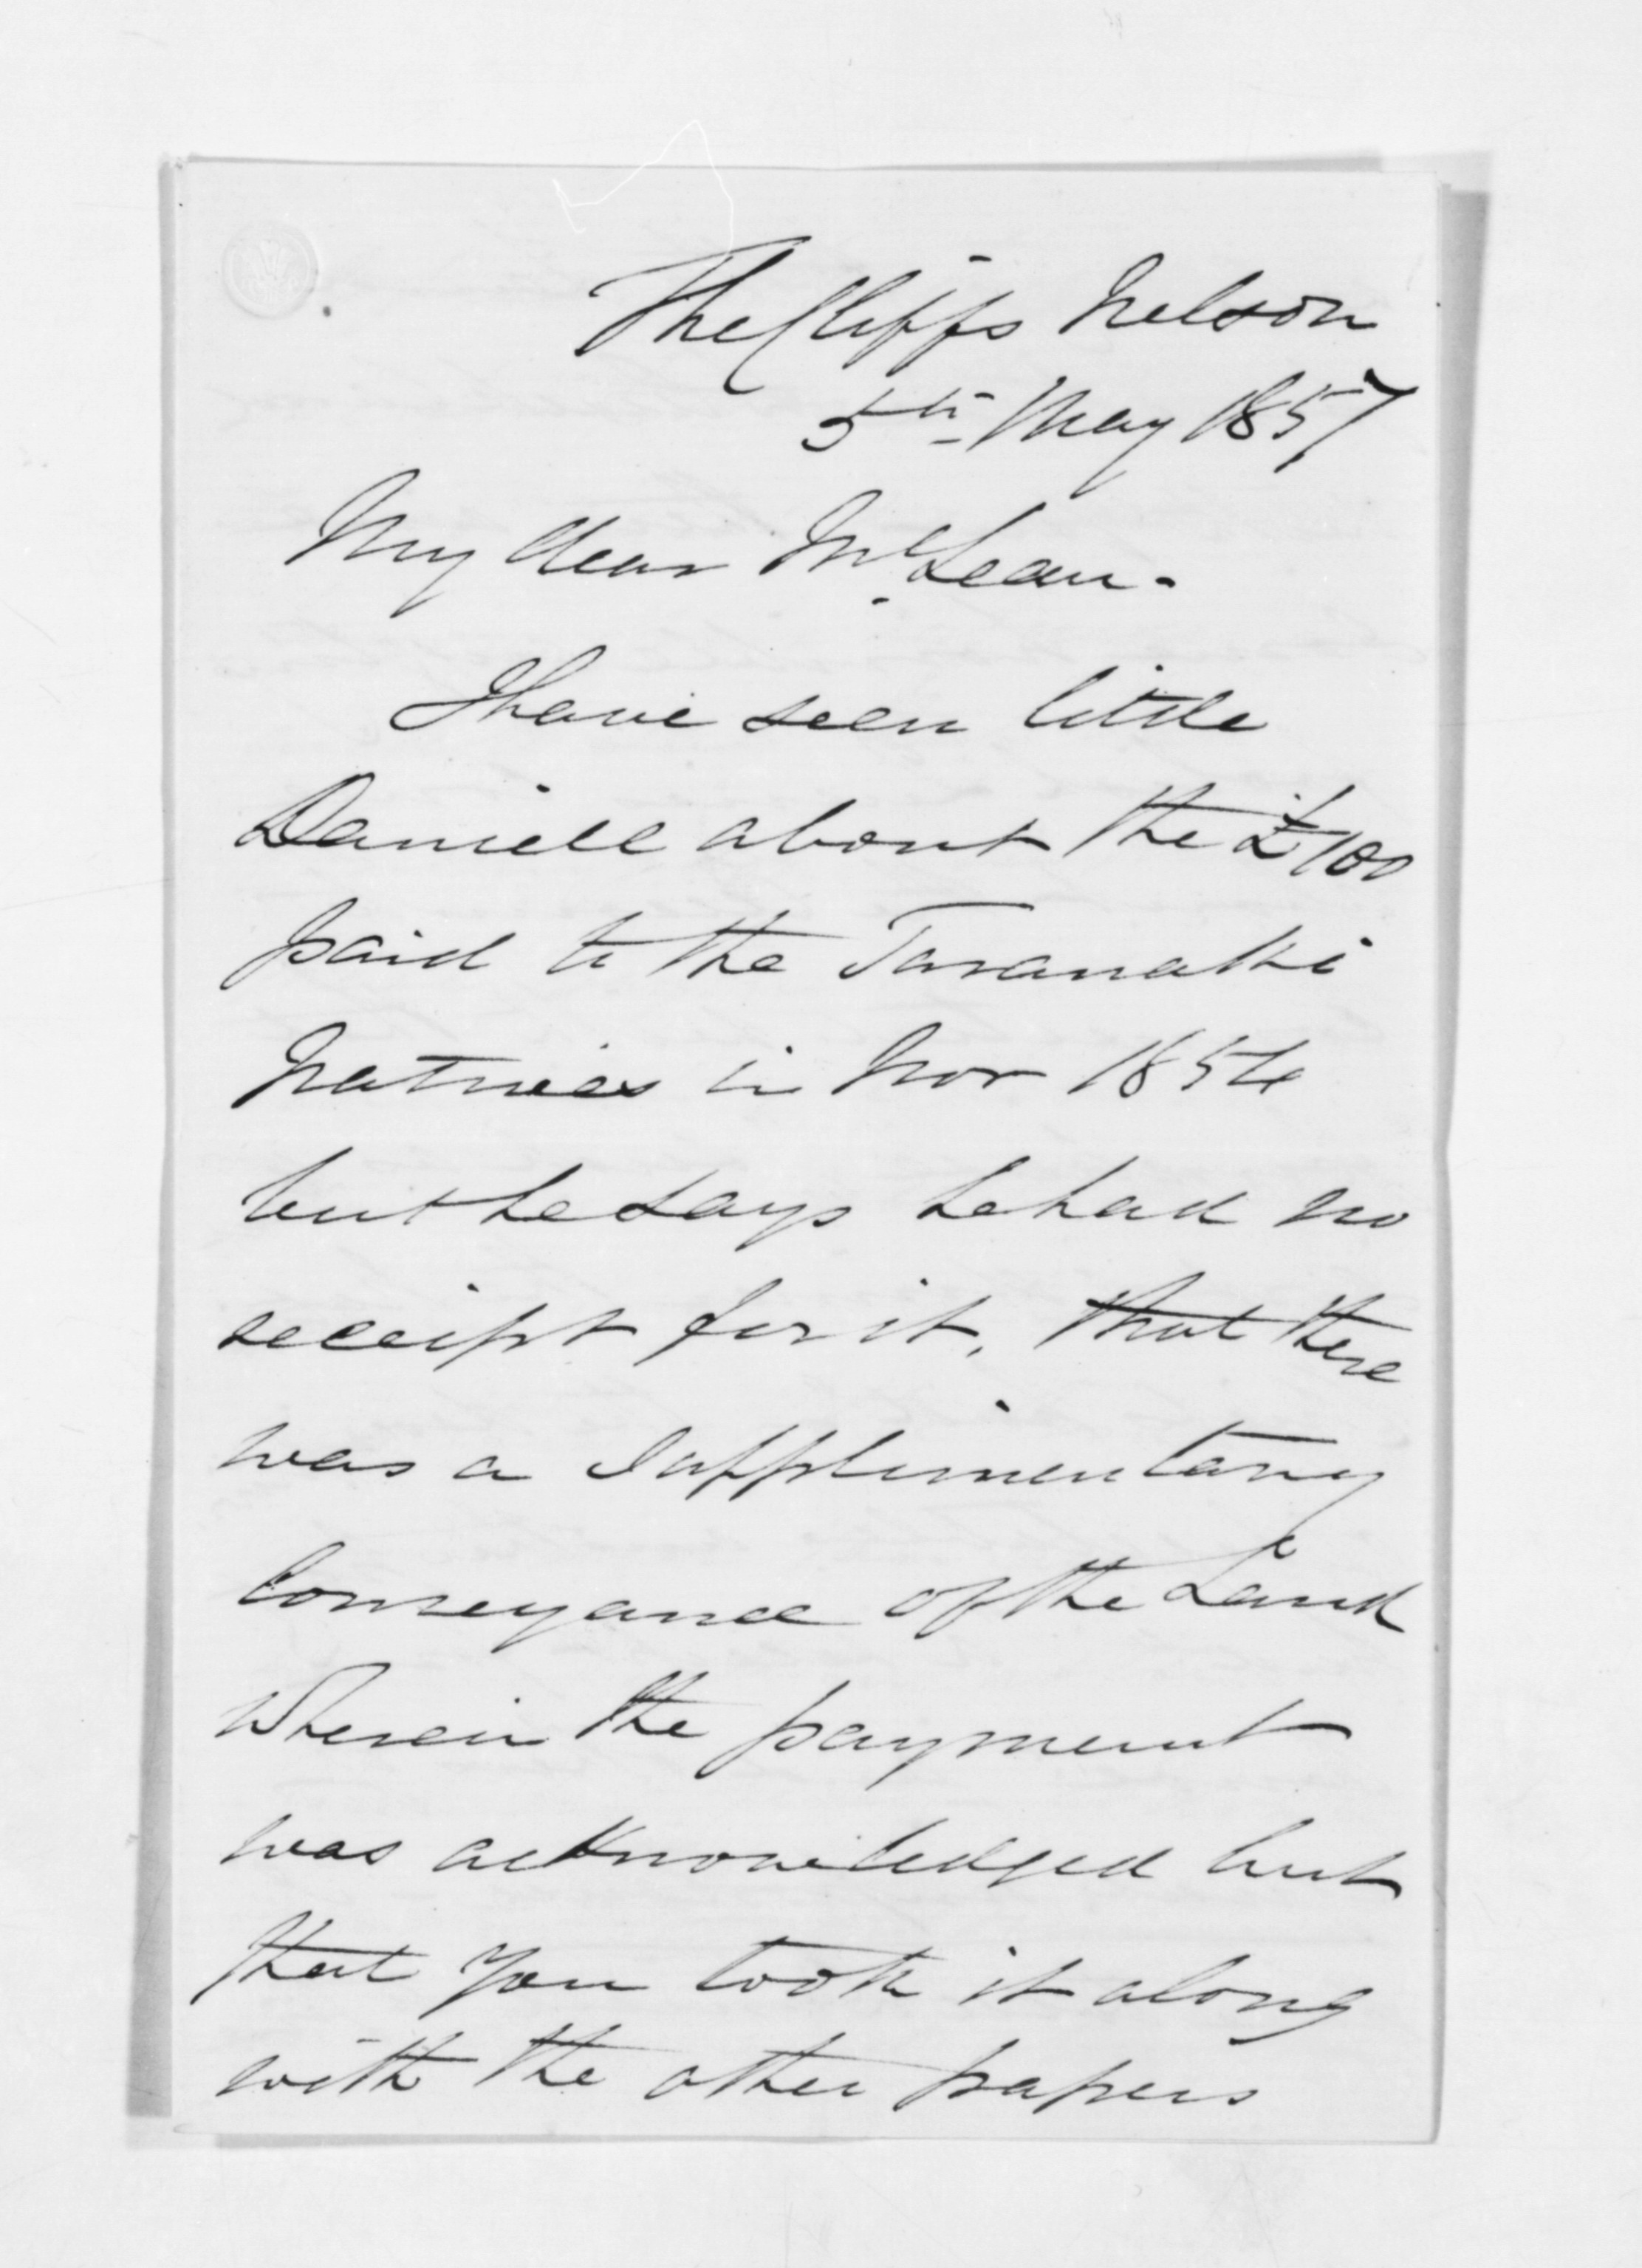 The Cliffs Nelson
5th May 1857
My dear McLean.
I have seen little
Daniell about the £100
paid to the Taranaki
Natives in Nov 1854
but he says he had no
receipt for it, that there
was a Supplimentary
Conveyance of the Land
wherein the payment
was acknowledged but
that you took it along
with the other papers